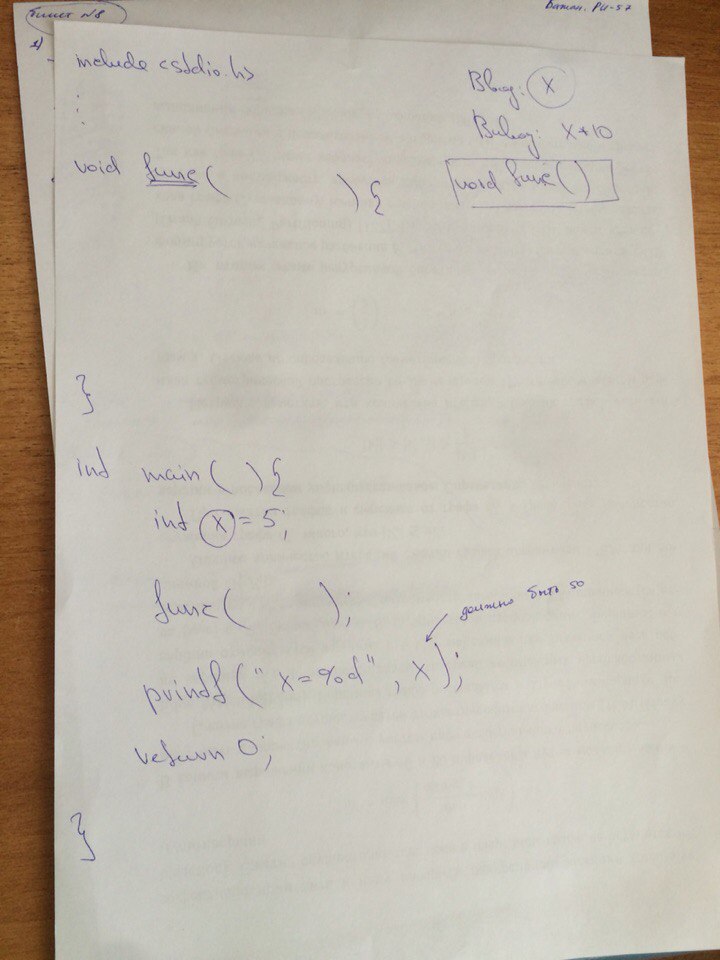 Билет №8
РИ-57
include <stdio.h>
Ввод: X
Вывод: X*10
void func()
void func( ) {
}
int main( ) {
int x = 5;
func( );
должно быть 50
printf("x=%d", x);
return 0;
}